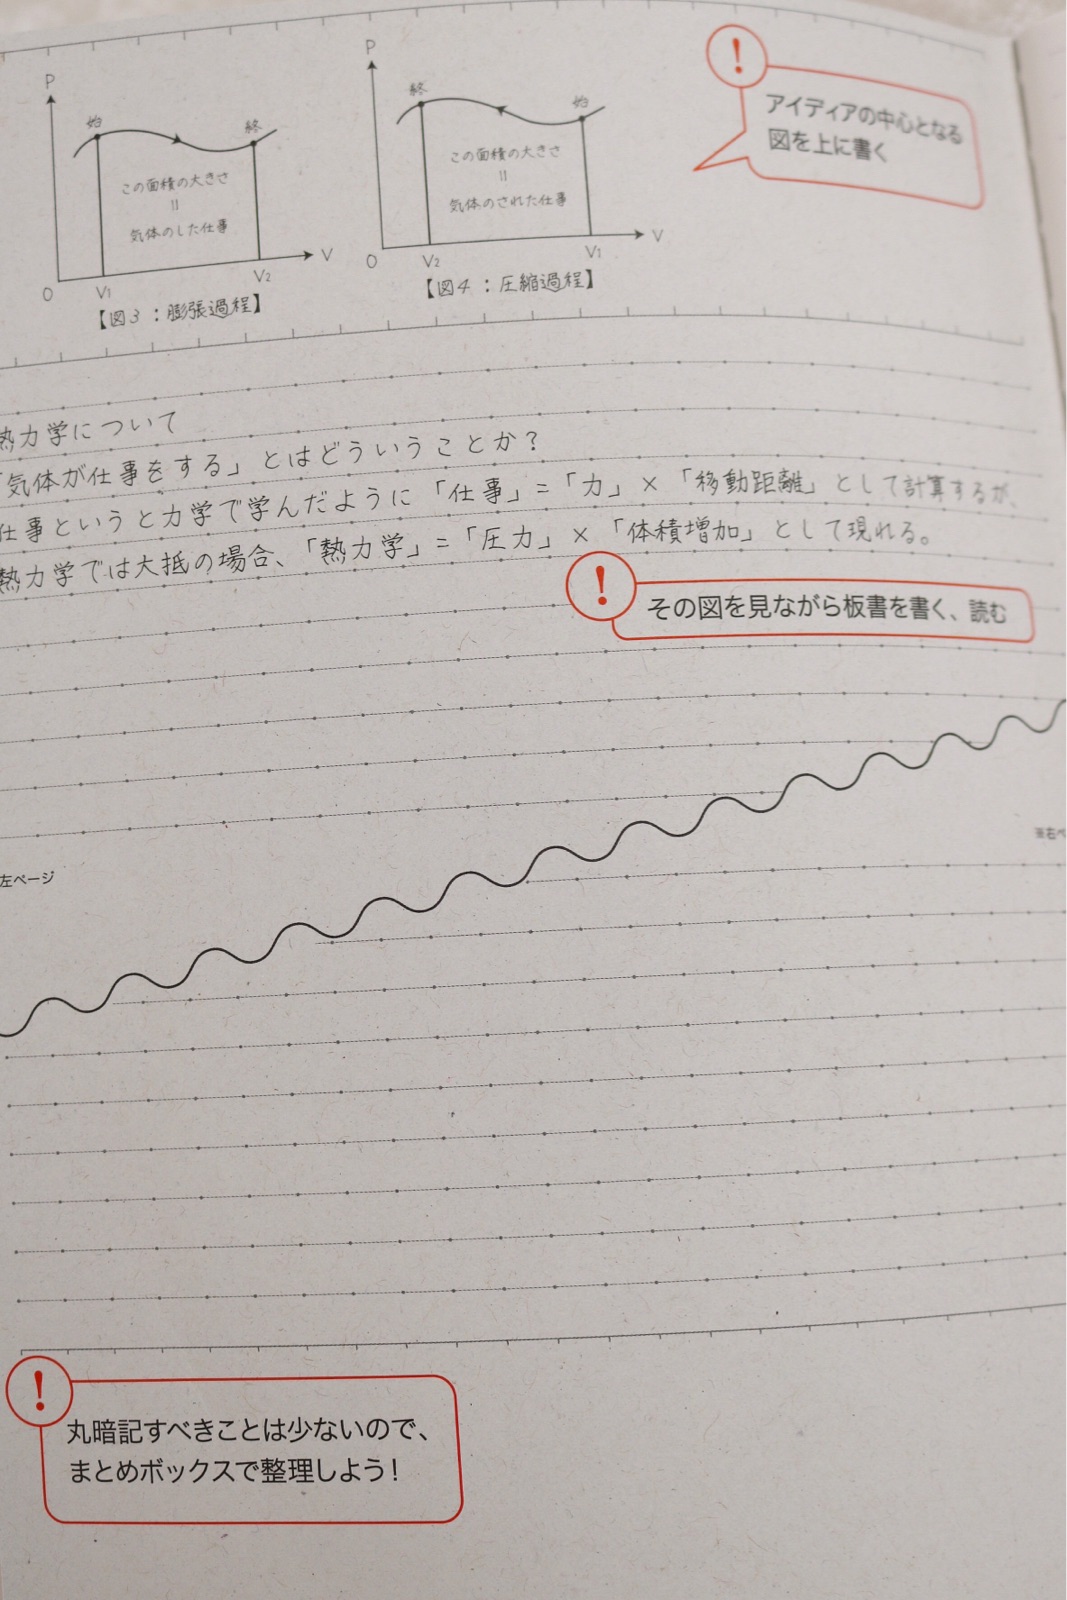 P
始
終
この面積の大きさ
=
気体のした仕事
O
V1
V2
V
【図3：膨張過程】
P
終
始
この面積の大きさ
=
気体のされた仕事
O
V2
V1
V
【図4：圧縮過程】
!
アイディアの中心となる
図を上に書く
熱力学について
「気体が仕事をする」とはどういうことか？
仕事というと力学で学んだように「仕事」=「力」×「移動距離」として計算するが、
熱力学では大抵の場合、「熱力学」=「圧力」×「体積増加」として現れる。
!
その図を見ながら板書を書く、読む
左ページ
※右ペ
!
丸暗記すべきことは少ないので、
まとめボックスで整理しよう！